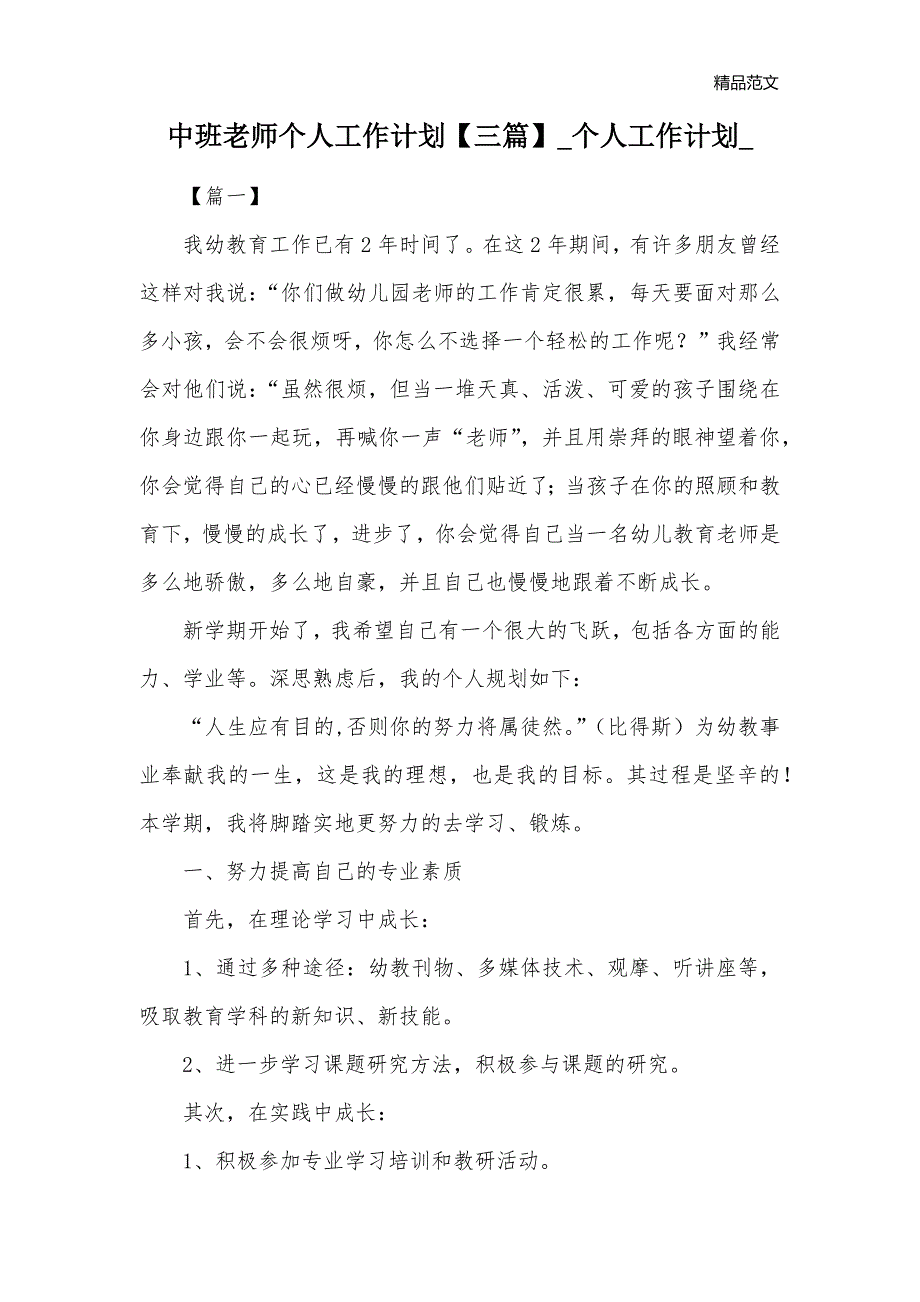 精品范文
中班老师个人工作计划【三篇】_个人工作计划_
【篇一】
我幼教育工作已有2年时间了。在这2年期间，有许多朋友曾经
这样对我说：“你们做幼儿园老师的工作肯定很累，每天要面对那么
多小孩，会不会很烦呀，你怎么不选择一个轻松的工作呢？”我经常
会对他们说：“虽然很烦，但当一堆天真、活泼、可爱的孩子围绕在
你身边跟你一起玩，再喊你一声“老师”，并且用崇拜的眼神望着你，
你会觉得自己的心已经慢慢的跟他们贴近了；当孩子在你的照顾和教
育下，慢慢的成长了，进步了，你会觉得自己当一名幼儿教育老师是
多么地骄傲，多么地自豪，并且自己也慢慢地跟着不断成长。
新学期开始了，我希望自己有一个很大的飞跃，包括各方面的能
力、学业等。深思熟虑后，我的个人规划如下：
“人生应有目的,否则你的努力将属徒然。”（比得斯）为幼教事
业奉献我的一生，这是我的理想，也是我的目标。其过程是坚辛的！
本学期，我将脚踏实地更努力的去学习、锻炼。
一、努力提高自己的专业素质
首先，在理论学习中成长：
1、通过多种途径：幼教刊物、多媒体技术、观摩、听讲座等，
吸取教育学科的新知识、新技能。
2、进一步学习课题研究方法，积极参与课题的研究。
其次，在实践中成长：
1、积极参加专业学习培训和教研活动。